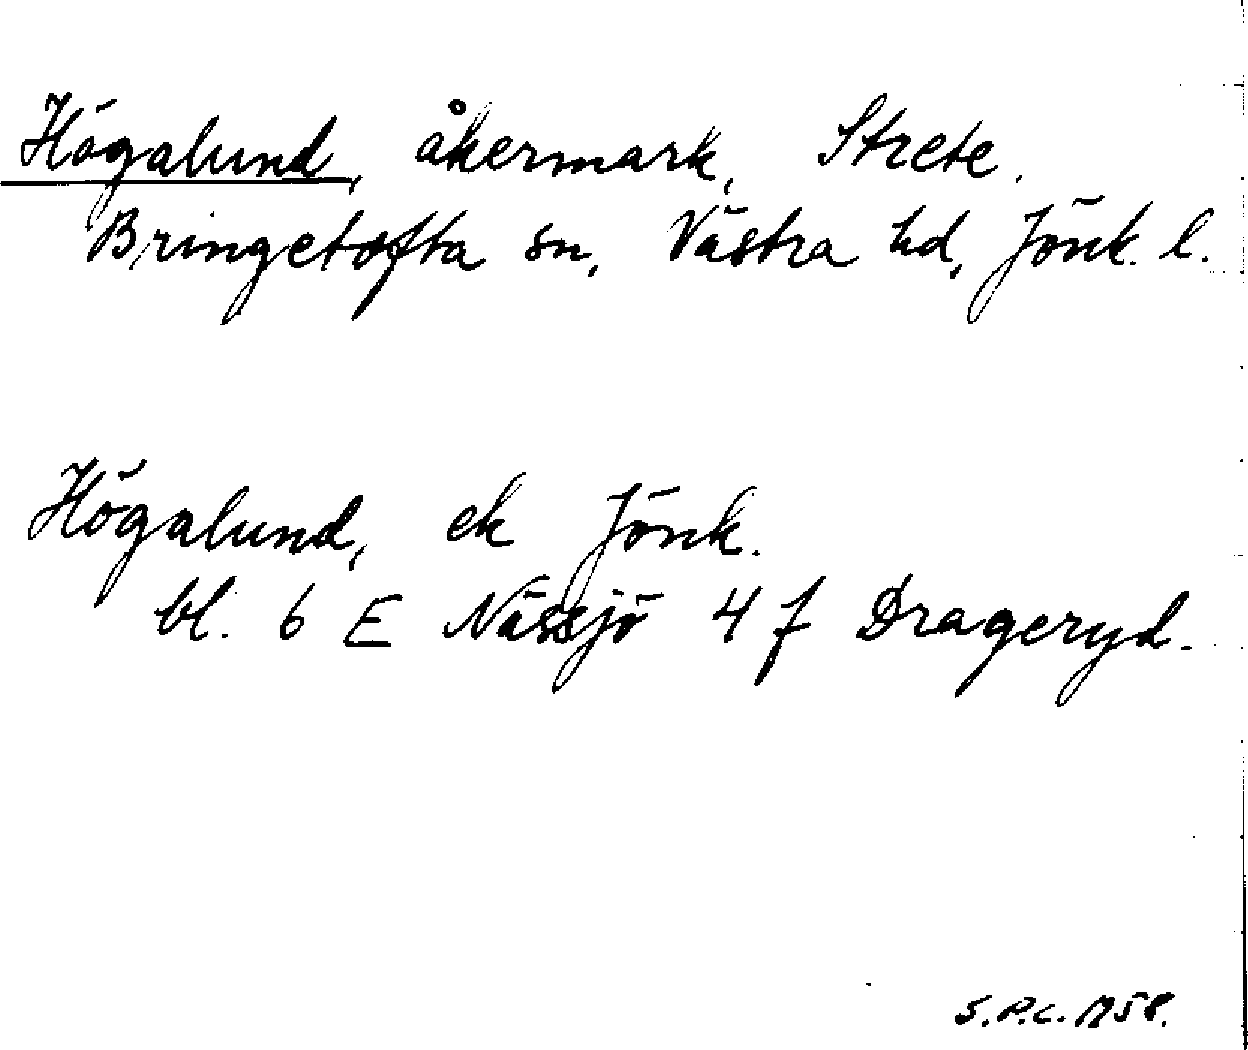 Högalund, åkermark, Strete.
Bringetofta sn, Västra hd, Jönk. l.
Högalund, ek Jönk.
bl. 6 E Nässjö 4 f Drageryd.
S.P.C. 1958.